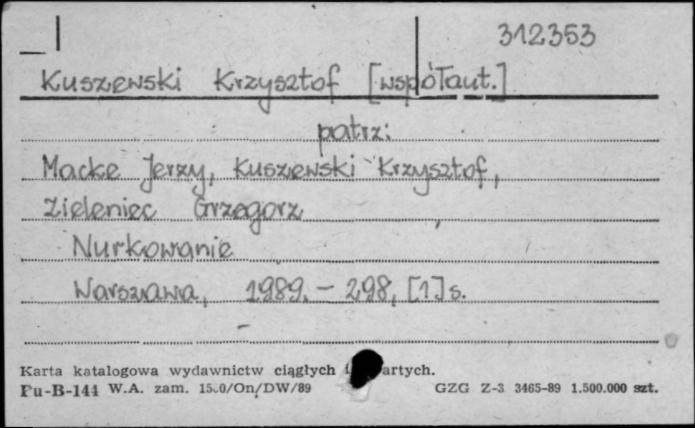 312353
Kuszewski Krzysztof [współaut.]
patrz:
Macke Jerzy, Kuszewski Krzysztof,
Zieleniec Grzegorz
Nurkowanie
Warszawa, 1989. - 298, [1] s.
Karta katalogowa wydawnictw ciągłych
Pu-B-144 W.A. zam. /On/DW/89 GZG Z-3 3465-89 1.500.000 szt.